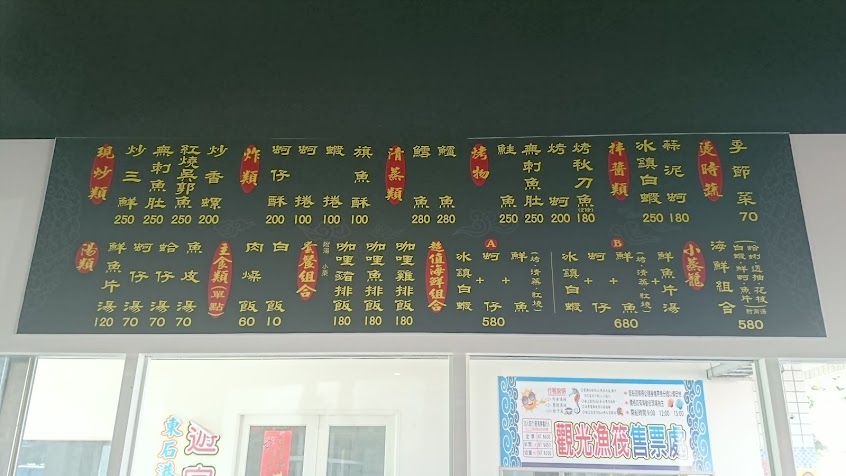 現炒類
炒三鮮 250
無刺魚肚 250
紅燒吳郭魚 250
炒香螺 200
炸類
蚵仔酥 200
蚵捲 100
蝦捲 100
旗魚酥 100
清蒸類
鱈魚 280
鱸魚 280
烤物
鮭魚 250
無刺魚肚 250
烤蚵 200
烤秋刀魚 180
拌醬類
冰鎮白蝦 250
蒜泥蚵 180
燙時蔬
季節菜 70
湯類
鮮魚片湯 120
蚵仔湯 70
蛤仔湯 70
魚皮湯 70
主食類(單點)
肉燥飯 60
白飯 10
套餐組合
附湯 小菜
咖哩豬排飯 180
咖哩魚排飯 180
咖哩雞排飯 180
超值海鮮組合
A
冰鎮白蝦+蚵仔+鮮魚(烤.清蒸.紅燒)
580
B
冰鎮白蝦+蚵仔+鮮魚(烤.清蒸.紅燒)鮮魚片湯
680
小蒸籠
海鮮組合
580
觀光漁筏售票處
東石港